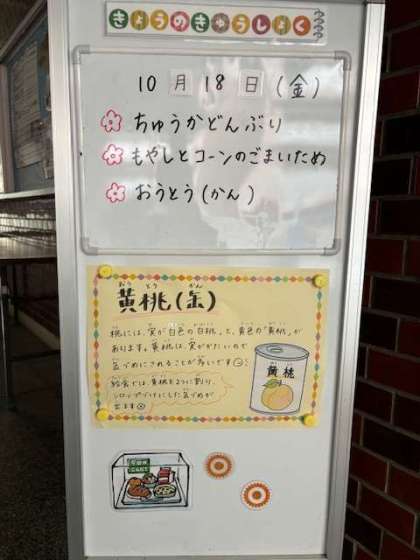 きょうのきゅうしょく
10月18日(金)
ちゅうかどんぶり
もやしとコーンのごまいため
おうとう(かん)
黄桃(缶)
桃には、実が白色の「白桃」と、黄色の「黄桃」が
あります。黄桃は、実がかたいので
缶づめにされることが多いです
給食では、黄桃を2つに割り、
シロップづけにした缶づめが
出ます
黄桃